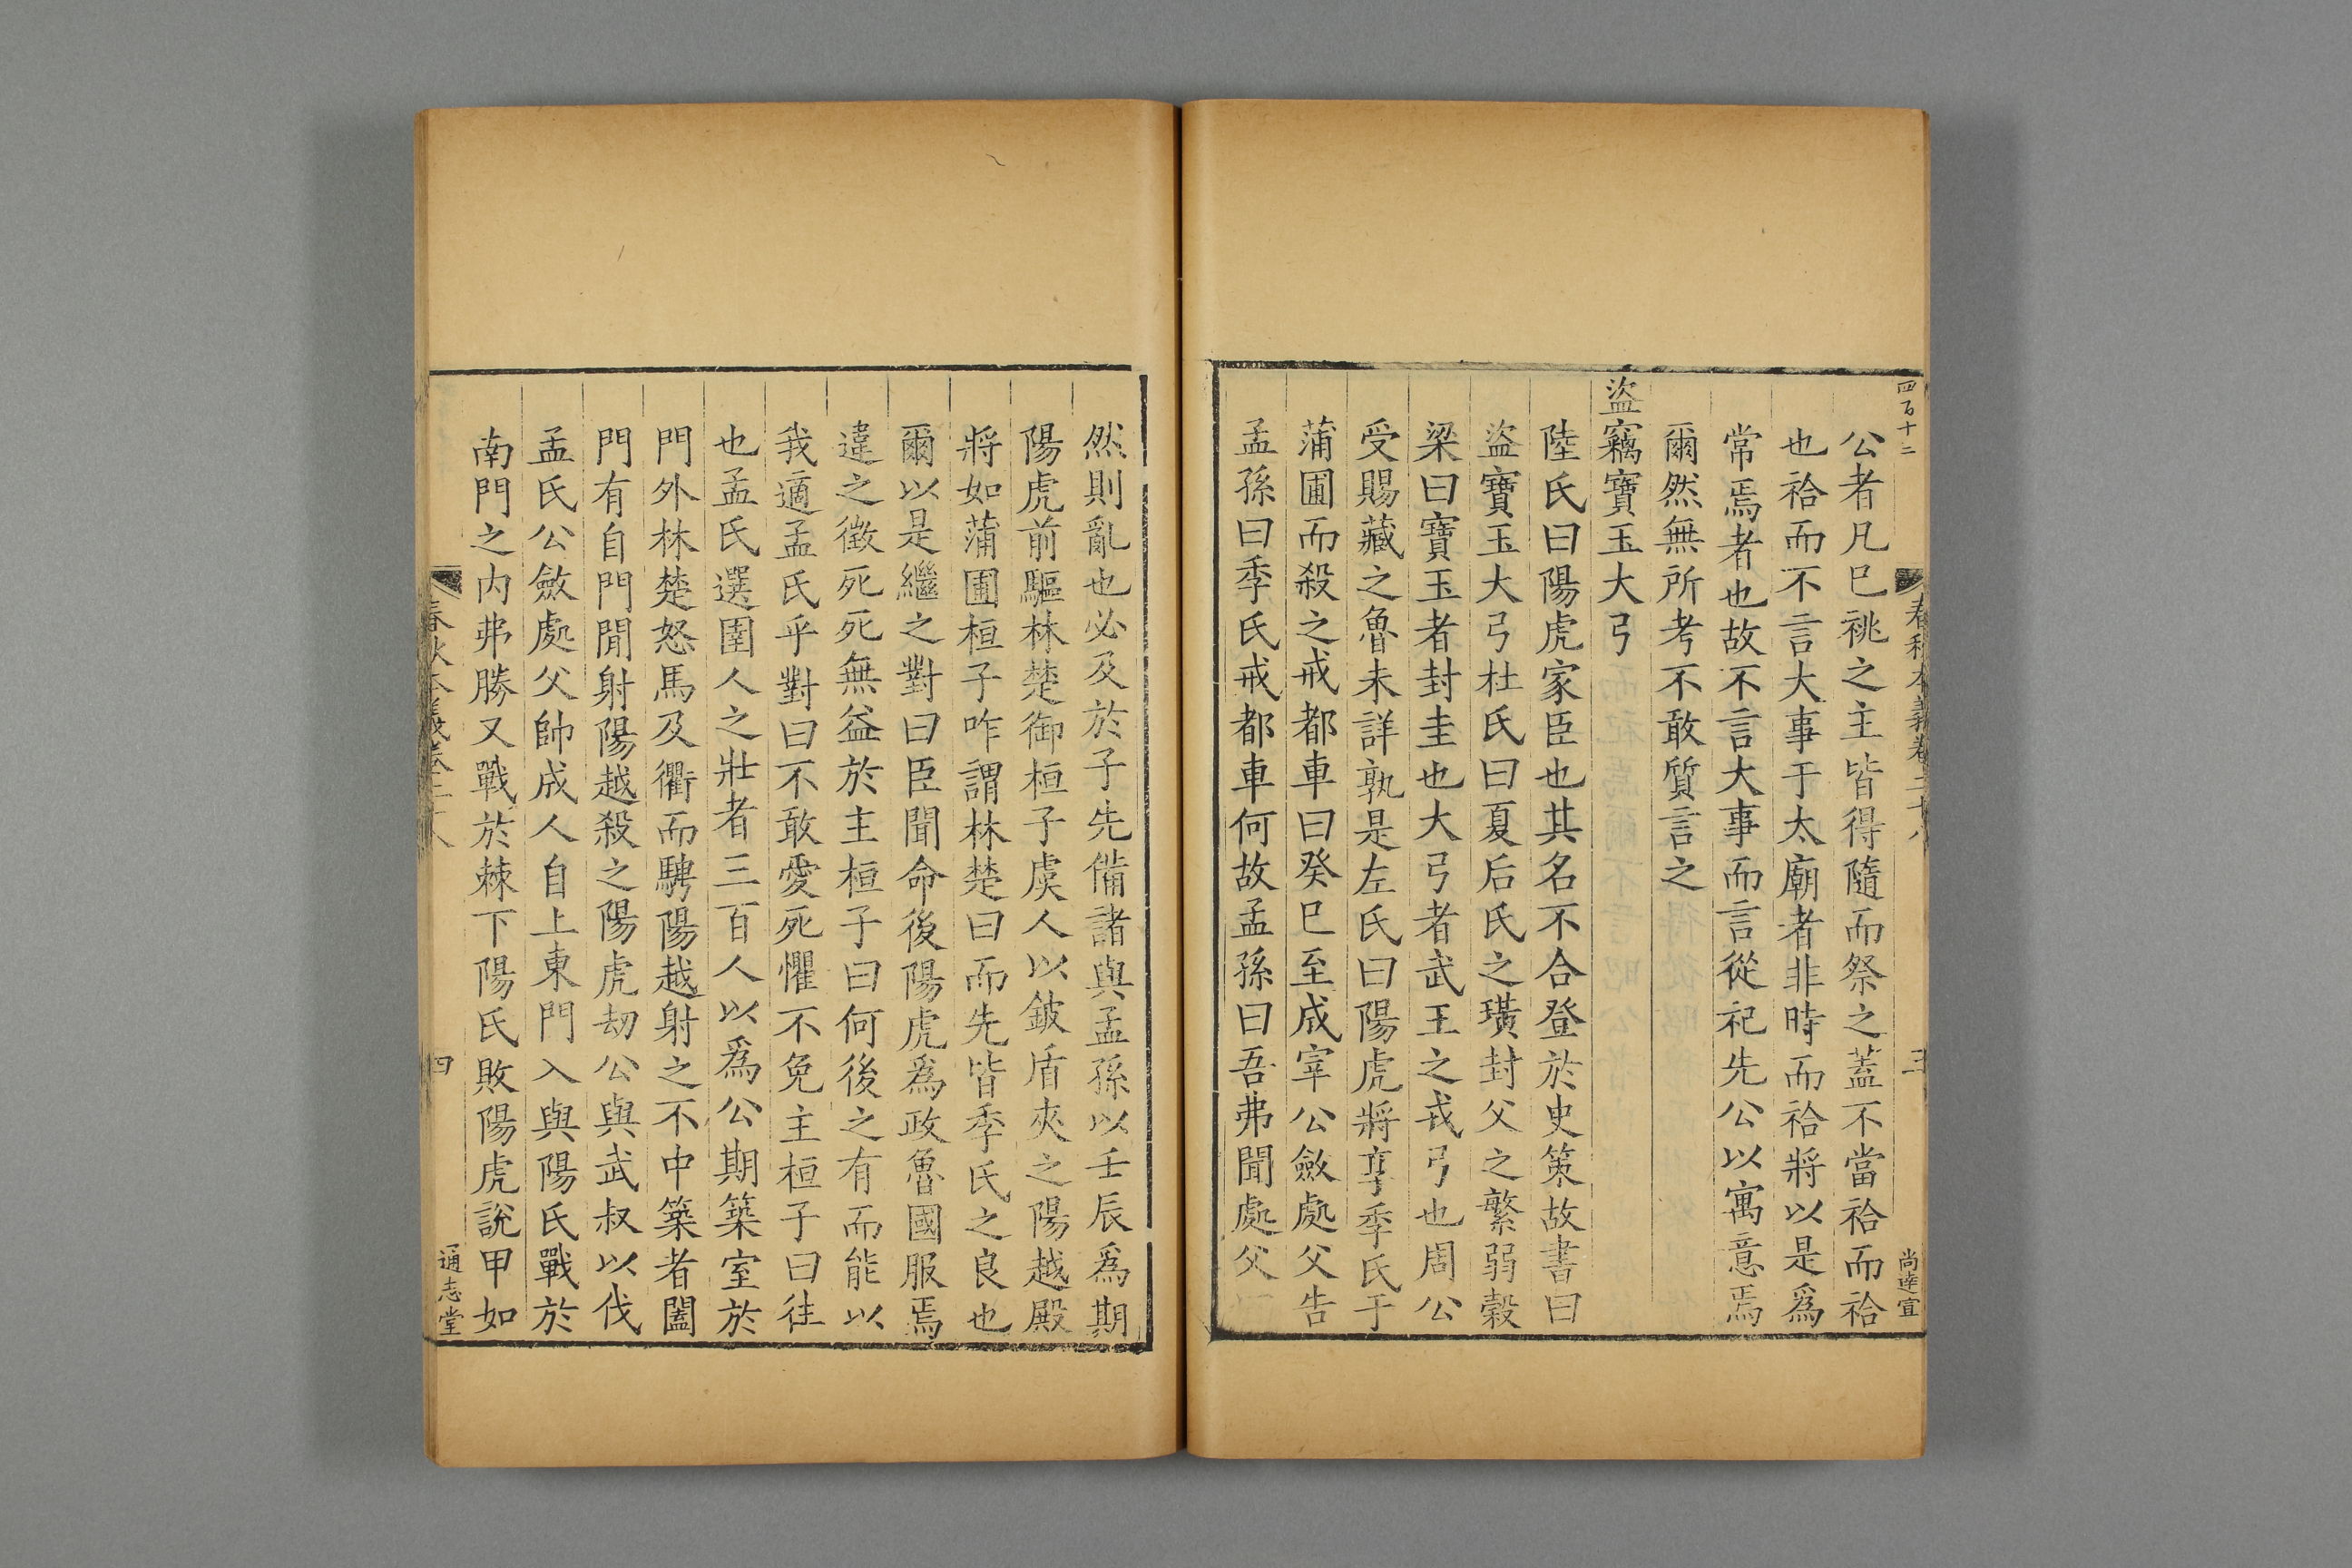 四百十二
春秋本義卷二十八
三
尚達宜
公者凡巳祧之主皆得隨而祭之蓋不當祫而祫
也祫而不言大事于太廟者非時而祫將以是爲
常焉者也故不言大事而言從祀先公以寓意焉
爾然無所考不敢質言之
盜竊寶玉大弓
陸氏曰陽虎家臣也其名不合登於史策故書曰
盜寶玉大弓杜氏曰夏后氏之璜封父之繁弱穀
梁曰寶玉者封圭也大弓者武王之戎弓也周公
受賜藏之魯未詳孰是左氏曰陽虎將享季氏于
蒲圃而殺之戒都車曰癸巳至成宰公斂處父告
孟孫曰季氏戒都車何故孟孫曰吾弗聞處父
然則亂也必及於子先備諸與孟孫以壬辰爲期
陽虎前驅林楚御桓子虞人以鈹盾夾之陽越殿
將如蒲圃桓子咋謂林楚曰而先皆季氏之良也
爾以是繼之對曰臣聞命後陽虎爲政魯國服焉
違之徵死死無益於主桓子曰何後之有而能以
我適孟氏乎對曰不敢愛死懼不免主桓子曰往
也孟氏選圉人之壯者三百人以爲公期築室於
門外林楚怒馬及衢而騁陽越射之不中築者闔
門有自門閒射陽越殺之陽虎劫公與武叔以伐
孟氏公斂處父帥成人自上東門入與陽氏戰於
南門之内弗勝又戰於棘下陽氏敗陽虎說甲如
春秋本義卷二十八
四
通志堂